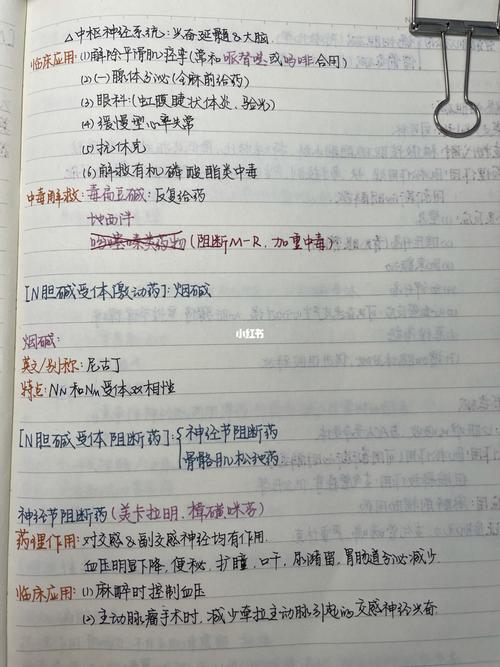 △中枢神经系统:兴奋延髓&大脑.
临床应用:(1)解除平滑肌痉挛(常和哌替啶或吗啡合用)
(2)(一)腺体分泌(全麻前给药)
(3)眼科:(虹膜睫状体炎、验光)
(4)缓慢型心率失常
(5)抗休克
(6)解救有机磷酸酯类中毒
中毒解救:毒扁豆碱:反复给药
地西泮
吩噻嗪类药物(阻断M-R,加重中毒)
[N胆碱受体激动药]:烟碱
小红书
烟碱:
英文/别称:尼古丁
特点:NN和NM受体双相性
[N胆碱受体阻断药]:{神经节阻断药
骨骼肌松弛药
神经节阻断药(美卡拉明、樟磺咪芬)
药理作用:对交感&副交感神经均有作用.
血压明显下降,便秘,扩瞳,口干,尿潴留,胃肠道分泌减少.
临床应用:(1)麻醉时控制血压
(2)主动脉瘤手术时,减少牵拉主动脉引起的交感神经兴奋